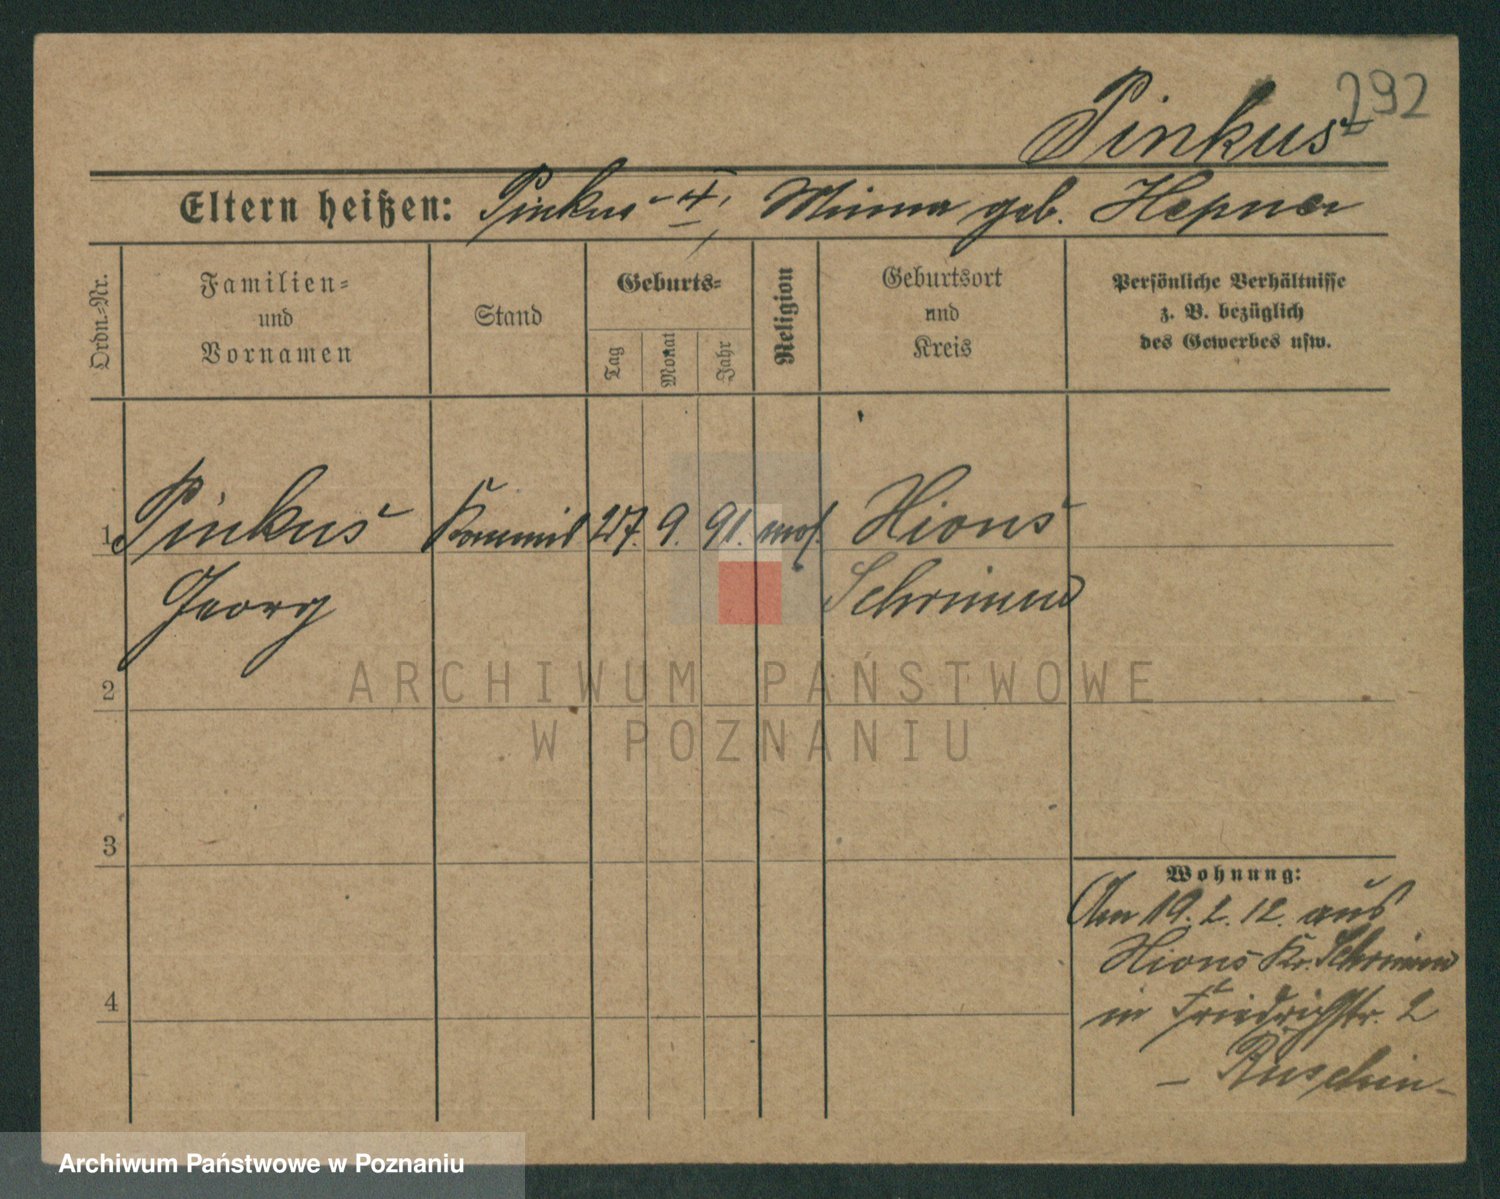 292
Pinkus
Eltern heißen: Pinkus, Minna geb. Hepner
Ordn.-Nr.
Familien-
und
Vornamen
Stand
Geburts-
Tag
Monat
Jahr
Religion
Geburtsort
und
Kreis
Persönliche Verhältnisse
z. B. bezüglich
des Gewerbes usw.
1 Pinkus Kommis 27. 9. 91. mos. Xions
Georg Schrimm
2
3
4
Wohnung:
Am 19. 2. 12. aus
Xions Kr. Schrimm
in Friedrichstr. 2
ARCHIWUM PAŃSTWOWE
W POZNANIU
Archiwum Państwowe w Poznaniu